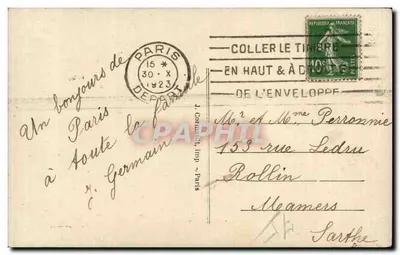 PARIS
15 *
30 - X
1923
DEPART
COLLER LE TIMBRE
EN HAUT & À DROITE
DE L'ENVELOPPE
REPUBLIQUE FRANÇAISE
10c
Un bonjour de
Paris
à toute la famille
Germain
CPARAMA.COM
Imp. - Paris
Mr et Mme Perronnie
153 rue Ledru
Rollin
Mamers
Sarthe